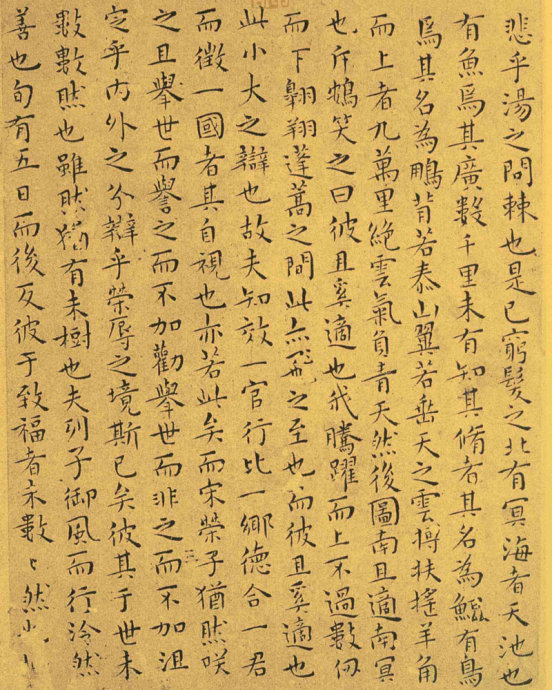 悲乎湯之問棘也是已窮髮之北有冥海者天池也
有魚焉其廣數千里未有知其脩者其名為鯤有鳥
焉其名為鵬背若泰山翼若垂天之雲摶扶搖羊角
而上者九萬里絕雲氣負青天然後圖南且適南冥
也斥鴳笑之曰彼且奚適也我騰躍而上不過數仞
而下翱翔蓬蒿之間此亦飛之至也而彼且奚適也
此小大之辯也故夫知效一官行比一鄉德合一君
而徵一國者其自視也亦若此矣而宋榮子猶然咲
之且舉世而譽之而不加勸舉世而非之而不加沮
定乎內外之分辯乎榮辱之境斯已矣彼其于世未
數數然也雖然猶有未樹也夫列子御風而行泠然
善也旬有五日而後反彼于致福者未數〻然也